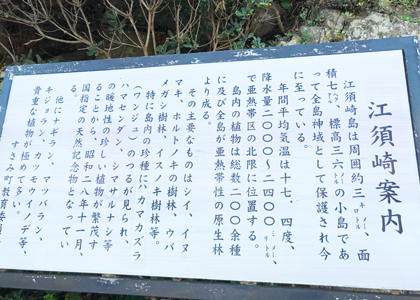 江須崎案内
江須崎島は周囲約三キロメートル、面
積七ヘクタール、標高三六メートルの小島であ
って全島神域として保護され今
に至っている。
年間平均気温は十七．四度、
降水量二〇〇〇〜二四〇〇ミリメートル、
で亜熱帯区の北限に位置する。
島内の植物は総数二〇〇余種
に及び全島が亜熱帯性の原生林
より成る。
その主要なものはシイ、イヌ
マキ、ホルトノキの樹林、ウバ
メガシ樹林、イスノキ樹林等。
特に島内の珍種にハカマカズラ
（ワンジュ）のつるが見られ、
ハマセンダン、シマサルナシ等
の暖地性の珍しい植物が繁茂す
ることから、昭和二八年十一月、
国指定の天然記念物となってい
る。
他にナギラン、マツバラン、
キジョラン、カツモウイノデ等、
貴重な植物が極めて多い。
すさみ町教育委員